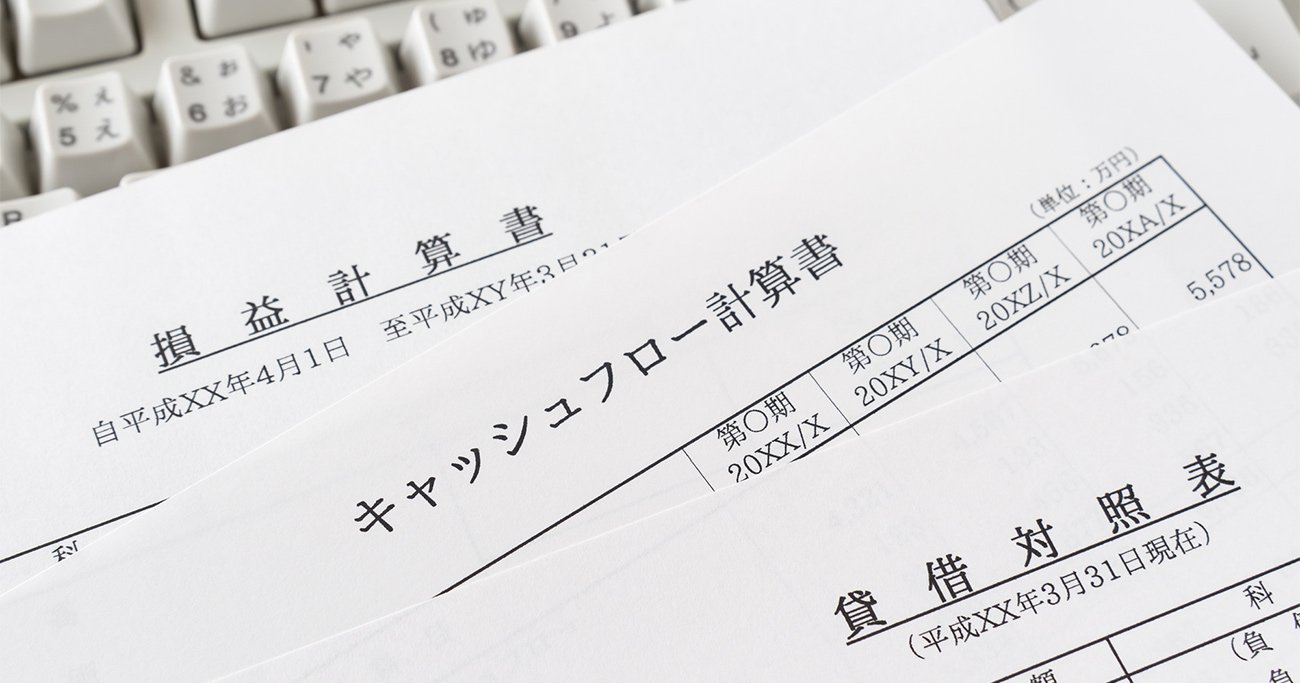 % ぇ
5 え
& ぉ
6 お
' ゃ
7 や
( ゅ
8 ゆ
9 ょ
R
損益計算書
自平成XX年4月1日 至平成XY年3月31
科
キャッシュフロー計算書
(単位：万円)
第〇期
20XX/X
第〇期
20XY/X
第〇期
20XZ/X
第〇期
20XA/X
5,578
貸借対照表
(平成XX年3月31日現在)
額
科
(負